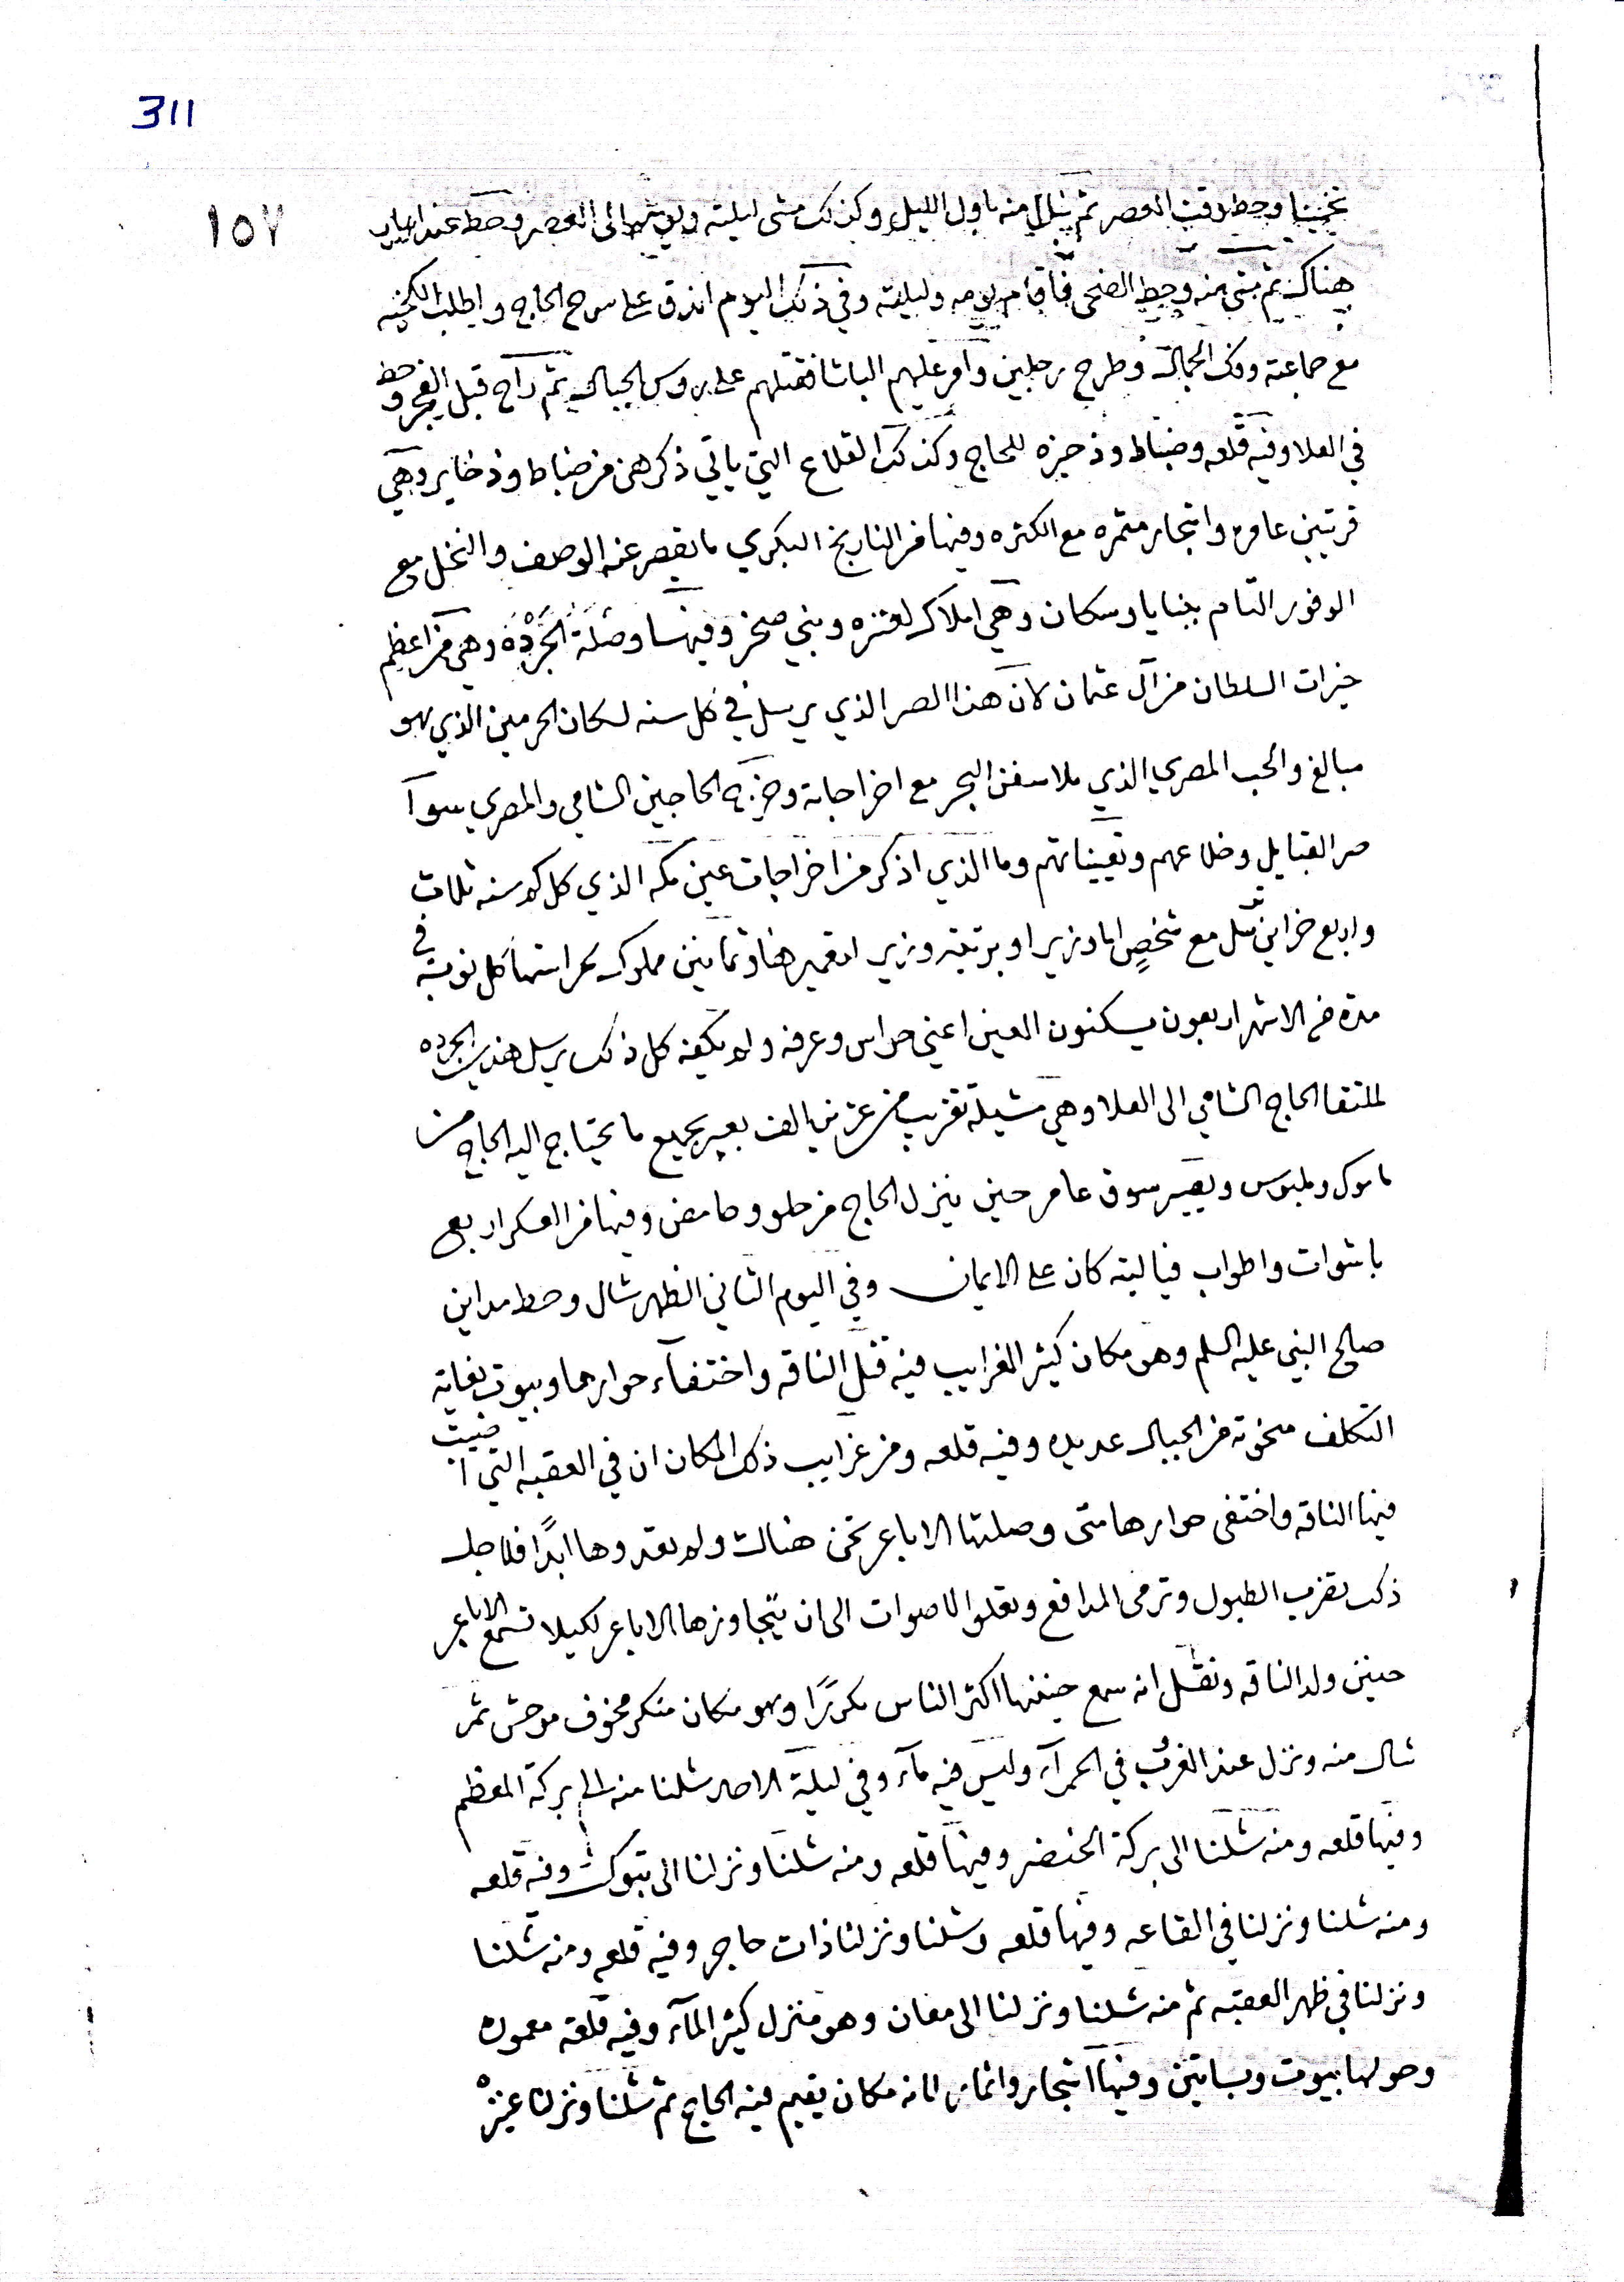 311
١٥٧
وحط وقت العصر ثم شال منه باول الليل وكذلك مشى ليلته ويومه الى العصر وحط عند ابيار
هناك ثم مشى منه وحط الضحى فاقام يومه وليلته وفي ذلك اليوم اندق على سرح الحاج
مع جماعته وفك الجمال وطرح رجلين وامر عليهم الباشا فقتلهم على روس الجبال ثم راح قبل الفجر وحط
في العلا وفيه قلعه وضباط وذخيره للحاج وكذلك القلاع التي ياتي ذكرهن من ضباط وذخاير وهي
قريتين عامره واشجار مثمره مع الكثره وفيها من النارنج البكري ما يقصر عنه الوصف والنخل مع
الوفور التام ببنايا وسكان وهي املاك لعنزه وبني صخر وفيها وصلة الجَرْدَه وهي من اعظم
خيرات السلطان من آل عثمان لان هذا الصر الذي يرسل في كل سنه لسكان الحرمين الذي هو
مبالغ والحب المصري الذي ملا سفن البحر مع اخراجاته وخرج الحاجين الشامي والمصري سوآ
صر القبايل وخلاعهم وتعييناتهم وما الذي اذكر من اخراجات عين مكه الذي كل كم سنه ثلاث
واربع خزاين ترسل مع شخصٍ اما وزير او برتبة وزير لتعميرها وثمانين مملوك لحراستها كل نوبة في
مدة من الاشهر اربعون يسكنون العين اعني حراس وعرفه ولم يكفه كل ذلك يرسل هذه الجرده
لملتقا الحاج الشامي الى العلا وهي مشيلة تقريب من عشرين الف بعير بجميع ما يحتاج اليه الحاج من
ماكول وملبوس ويصير سوق عامر حين ينزل الحاج من حلو وحامض وفيها من العسكر اربع
باشوات واطواب فياليته كان على الايمان وفي اليوم الثاني الظهر شال وحط مداين
صالح النبي عليه السلم وهو مكان كثير الغرايب فيه قتل الناقه واختفآء حوارها وبيوت بغاية
التكلف منحوته من الجبال عديده وفيه قلعه ومن غرايب ذلك المكان ان في العقبه التي
فيها الناقه واختفى حوارها متى وصلتها الاباعر تحن هناك ولم تعدوها ابدًا فلاجل
ذلك تضرب الطبول وترمى المدافع وتعلوا الاصوات الى ان تتجاوزها الاباعر لكيلا تسمع الاباعر
حنين ولد الناقه ونقل انه سمع حنينها اكثر الناس مكررًا وهو مكان منكر مخوف موحش ثم
شال منه ونزل عند الغرب في الحمرآء وليس فيه مآء وفي ليلة الاحد شلنا منه الى بركة المعظم
وفيها قلعه ومنه شلنا الى بركة الخيضر وفيها قلعه ومنه شلنا ونزلنا الى تبوك وفيه قلعه
ومنه شلنا ونزلنا في القاعه وفيها قلعه وشلنا ونزلنا ذات حاج وفيه قلعه ومنه شلنا
ونزلنا في ظهر العقبه ثم منه شلنا ونزلنا الى معان وهو منزل كثير المآء وفيه قلعة معموره
وحولها بيوت وبساتين وفيها اشجار واثمار لانه مكان يقيم فيه الحاج ثم شلنا ونزلنا عنيزه